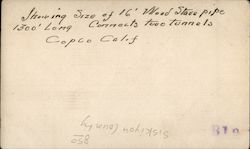 Showing Size of 16' Wood Stave pipe
1300' Long Connects two tunnels
Copco Calif
Siskiyou County
850
B10